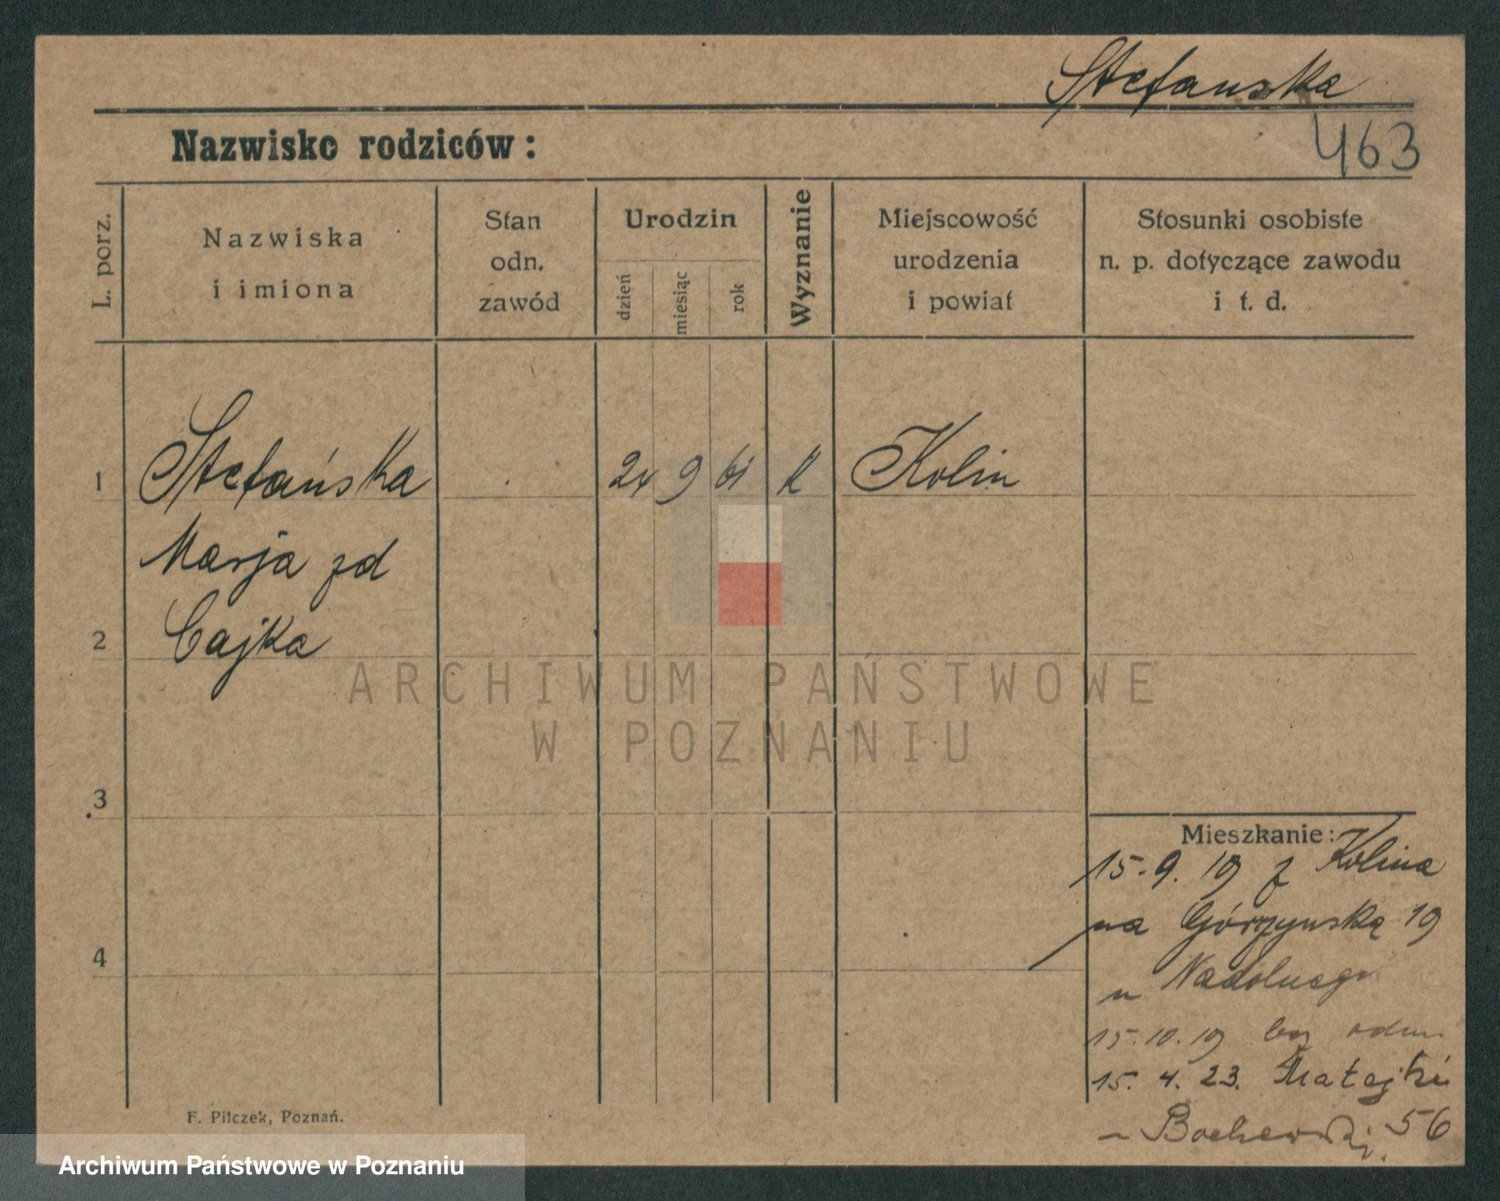 Stefanska
Nazwisko rodziców :
463
L. porz.
Nazwiska
i imiona
Stan
odn.
zawód
Urodzin
dzień
miesiąc
rok
Wyznanie
Miejscowość
urodzenia
i powiat
Stosunki osobiste
n. p. dotyczące zawodu
i t. d.
1
Stefańska
24 9 61 k Kolin
Marja zd
2
Cajka
ARCHIWUM PAŃSTWOWE
W POZNANIU
3
Mieszkanie:
15.9.19 z Kolina
na Górzyńską 19
4
u Nadolnego
15.10.19 bez odm.
15.4.23. Matejki
56
F. Pilczek, Poznań.
Archiwum Państwowe w Poznaniu